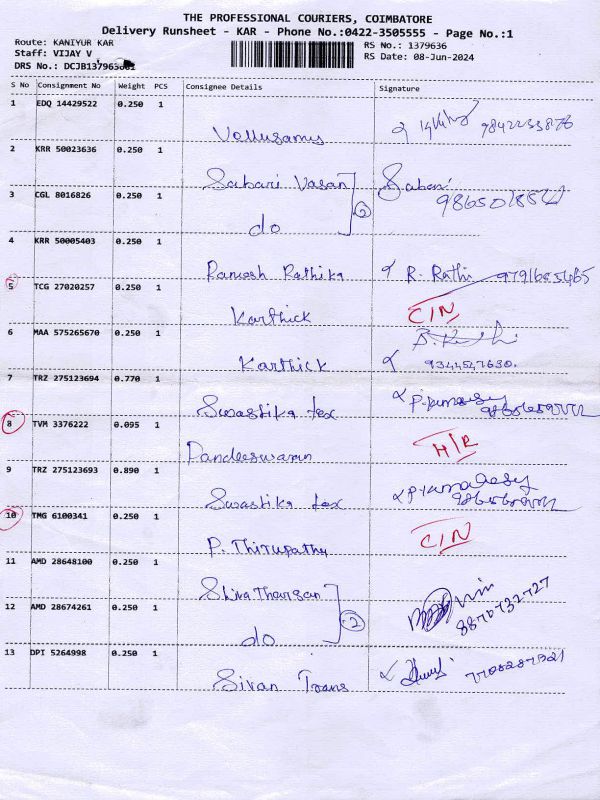 THE PROFESSIONAL COURIERS, COIMBATORE
Delivery Runsheet - KAR - Phone No.:0422-3505555 - Page No.:1
Route: KANIYUR KAR
RS No.: 1379636
Staff: VIJAY V
RS Date: 08-Jun-2024
DRS No.: DCJB137963
S No Consignment No Weight PCS Consignee Details Signature
1 EDQ 14429522 0.250 1
Vellusamy
2 KRR 50023636 0.250 1
Sabari Vasan
3 CGL 8016826 0.250 1
do 2
4 KRR 50005403 0.250 1
Ramesh Rathika R. Rathi 9791685465
5 TCG 27020257 0.250 1
Karthick C/N
6 MAA 575265670 0.250 1
Karthick 9344547630.
7 TRZ 275123694 0.770 1
Swastika tex
8 TVM 3376222 0.095 1
Pandeeswaran H/R
9 TRZ 275123693 0.890 1
Swastika tex
10 TMG 6100341 0.250 1
P. Thirupathy C/N
11 AMD 28648100 0.250 1
Shivatharsan
12 AMD 28674261 0.250 1
do 2 8870732727
13 DPI 5264998 0.250 1
Sivan Trans